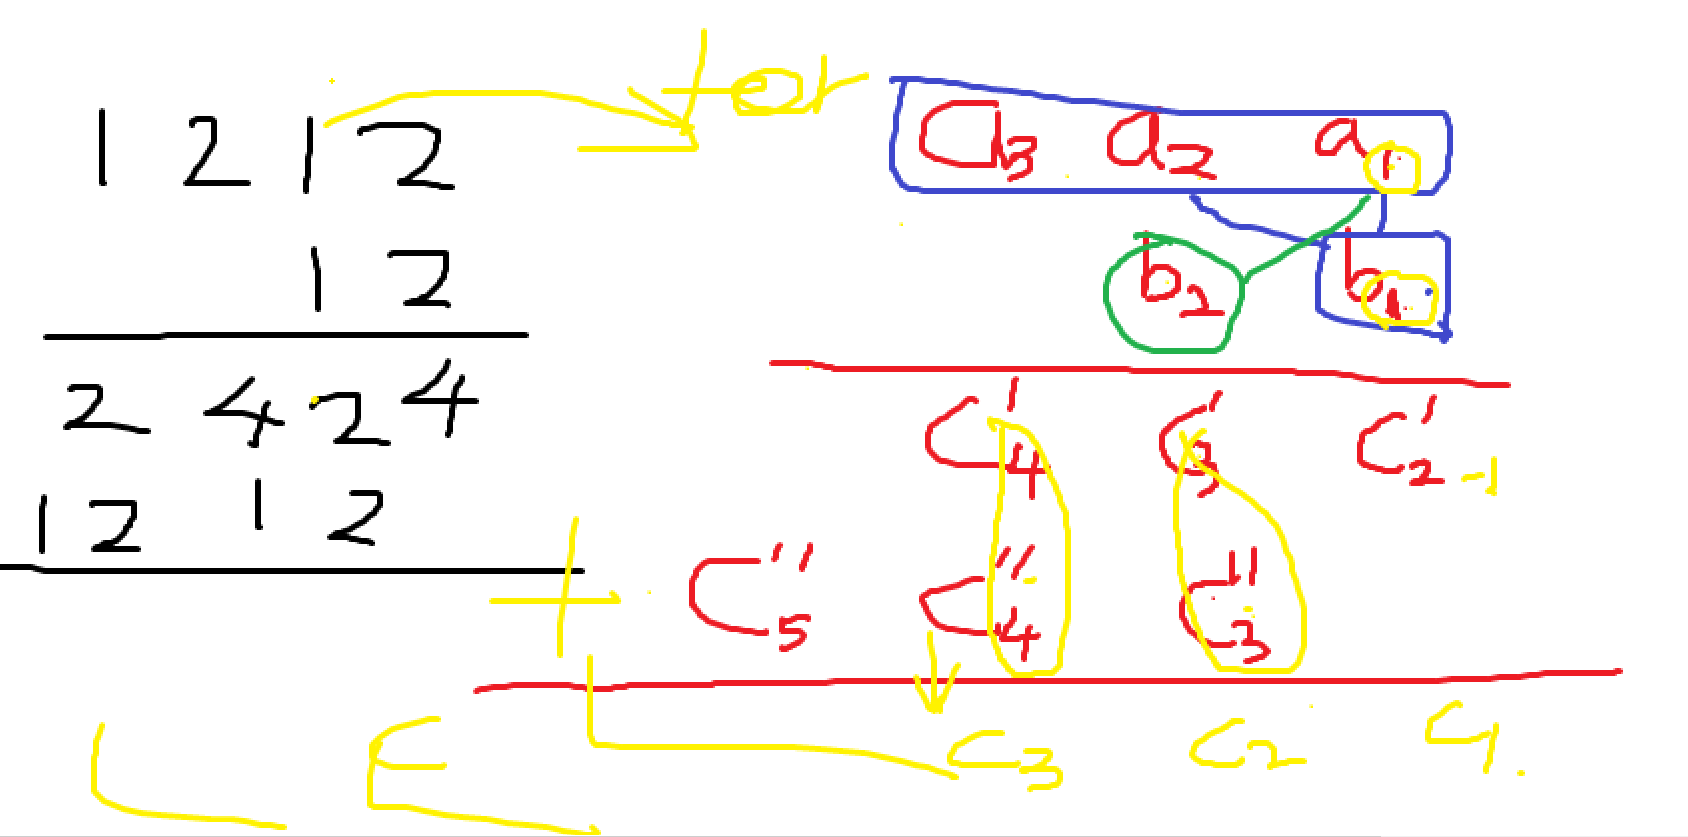 1 2 1 2
1 2
2 4 2 4
1 2 1 2
+ or
a3 a2 a1
b2 b1
C'4 C'3 C'2 -1
+ C''5 C''4 C''3
C3 C2 C1.